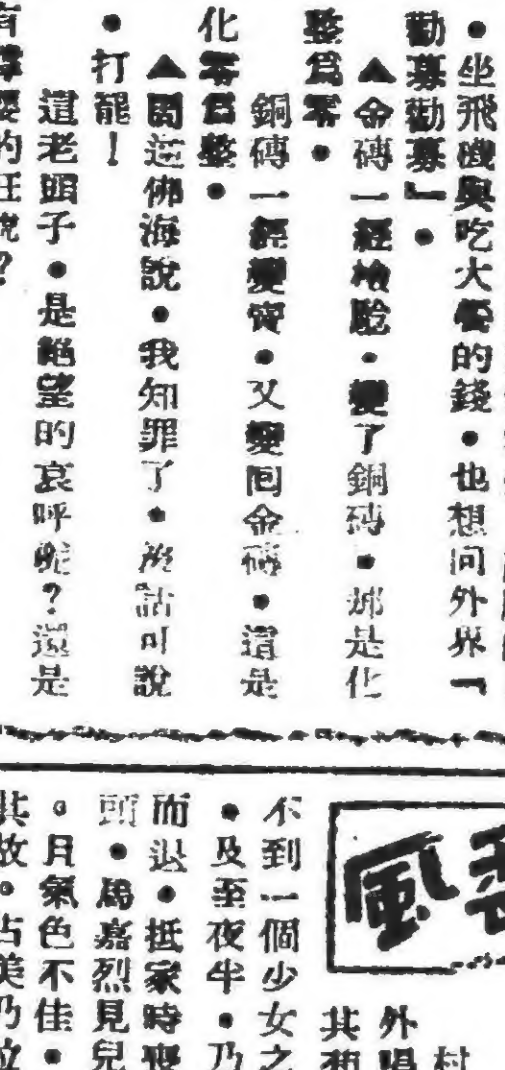 ●坐飛機與吃大餐的錢●也想向外界「
勸募勸募」●
▲金磚一經檢驗●變了銅磚●那是化
整爲零●
銅磚一經變賣●又變囘金磚●這是
化零爲整●
▲周逆佛海說●我知罪了●沒話可說
●打罷！
這老頭子●是絕望的哀呼呢？還是
風
村
外唱
其
不到一個少女之
●及至夜半●乃
而退●抵家時喪
頭●爲嘉烈見兒
。月氣色不佳●
其故。占美乃